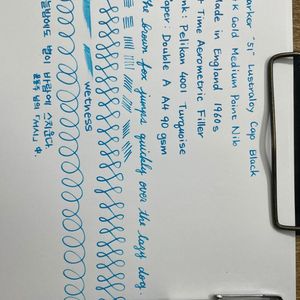 arker "51" Lustraloy Cap Black
K Gold Medium Point Nib
ade in England 1960s
t Time Aerometric Filler
nk: Pelikan 4001 Turquoise
aper: Double A A4 90 gsm
he brown fox jumps quickly over the lazy dog.
wetness
늘밤에도 별이 바람에 스치운다.
윤동주 님의 「서시」 中.